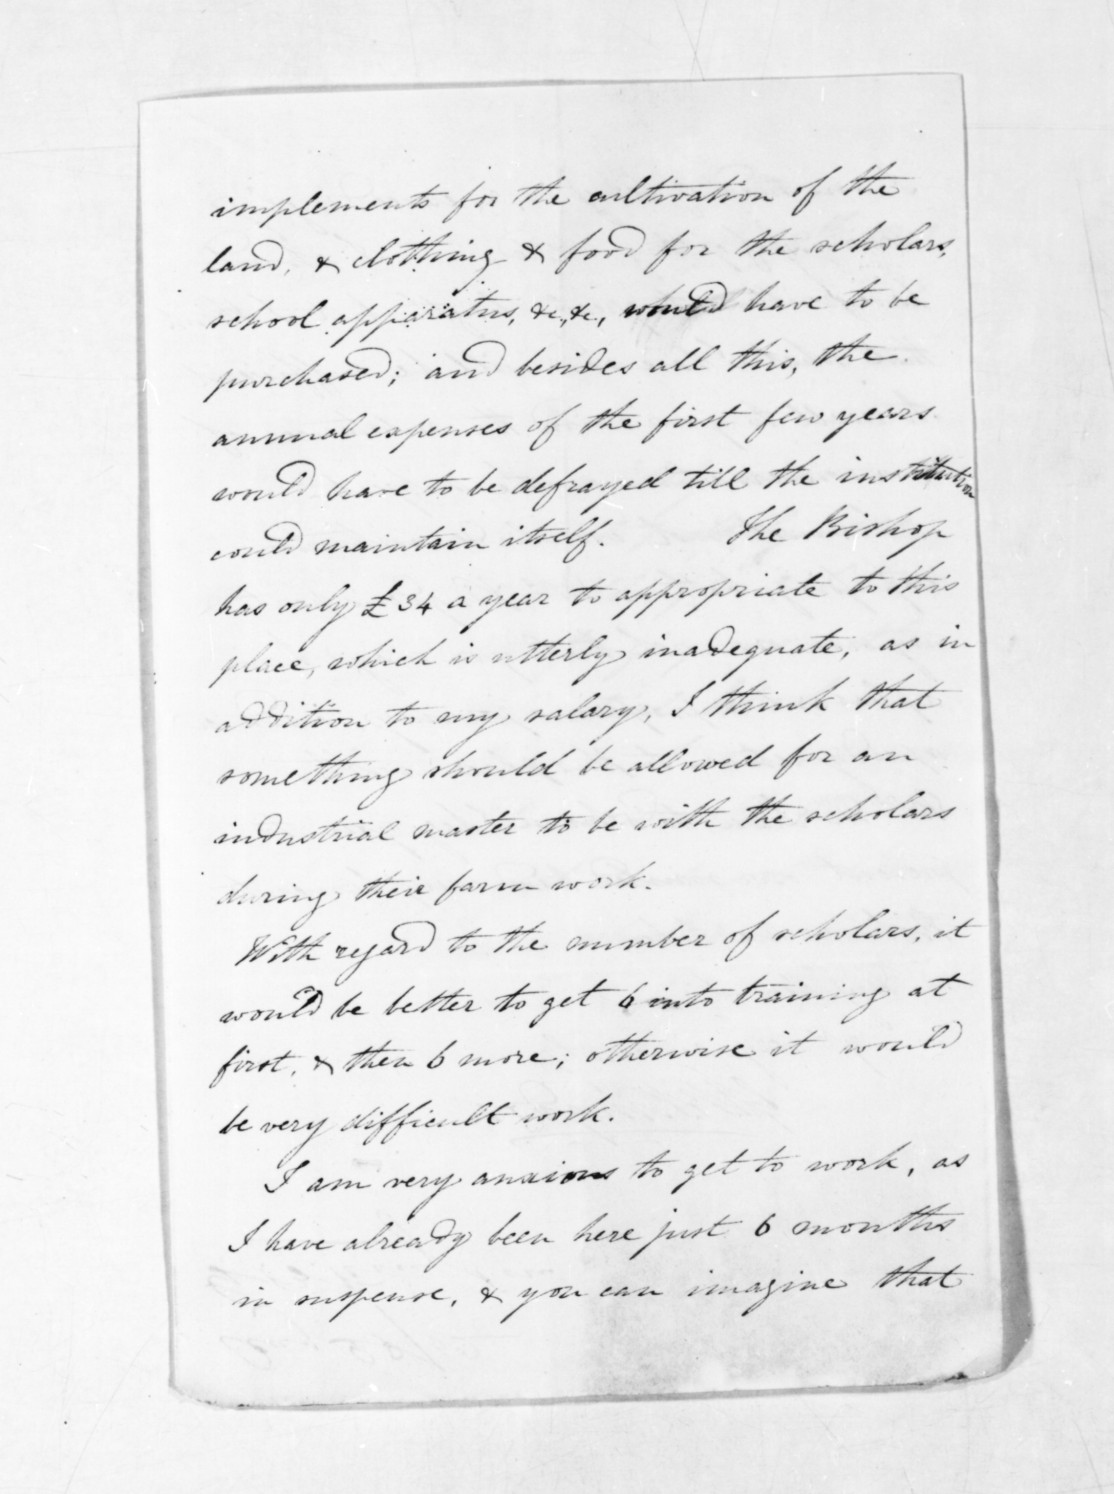 implements for the cultivation of the
land, & clothing & food for the scholars,
school apparatus, &c, &c, would have to be
purchased; and besides all this, the
annual expenses of the first few years
would have to be defrayed till the institution
could maintain itself. The Bishop
has only £34 a year to appropriate to this
place, which is utterly inadequate, as in
addition to my salary, I think that
something should be allowed for an
industrial master to be with the scholars
during their farm work.
With regard to the number of scholars, it
would be better to get 6 into training at
first, & then 6 more; otherwise it would
be very difficult work.
I am very anxious to get to work, as
I have already been here just 6 months
in suspense, & you can imagine that